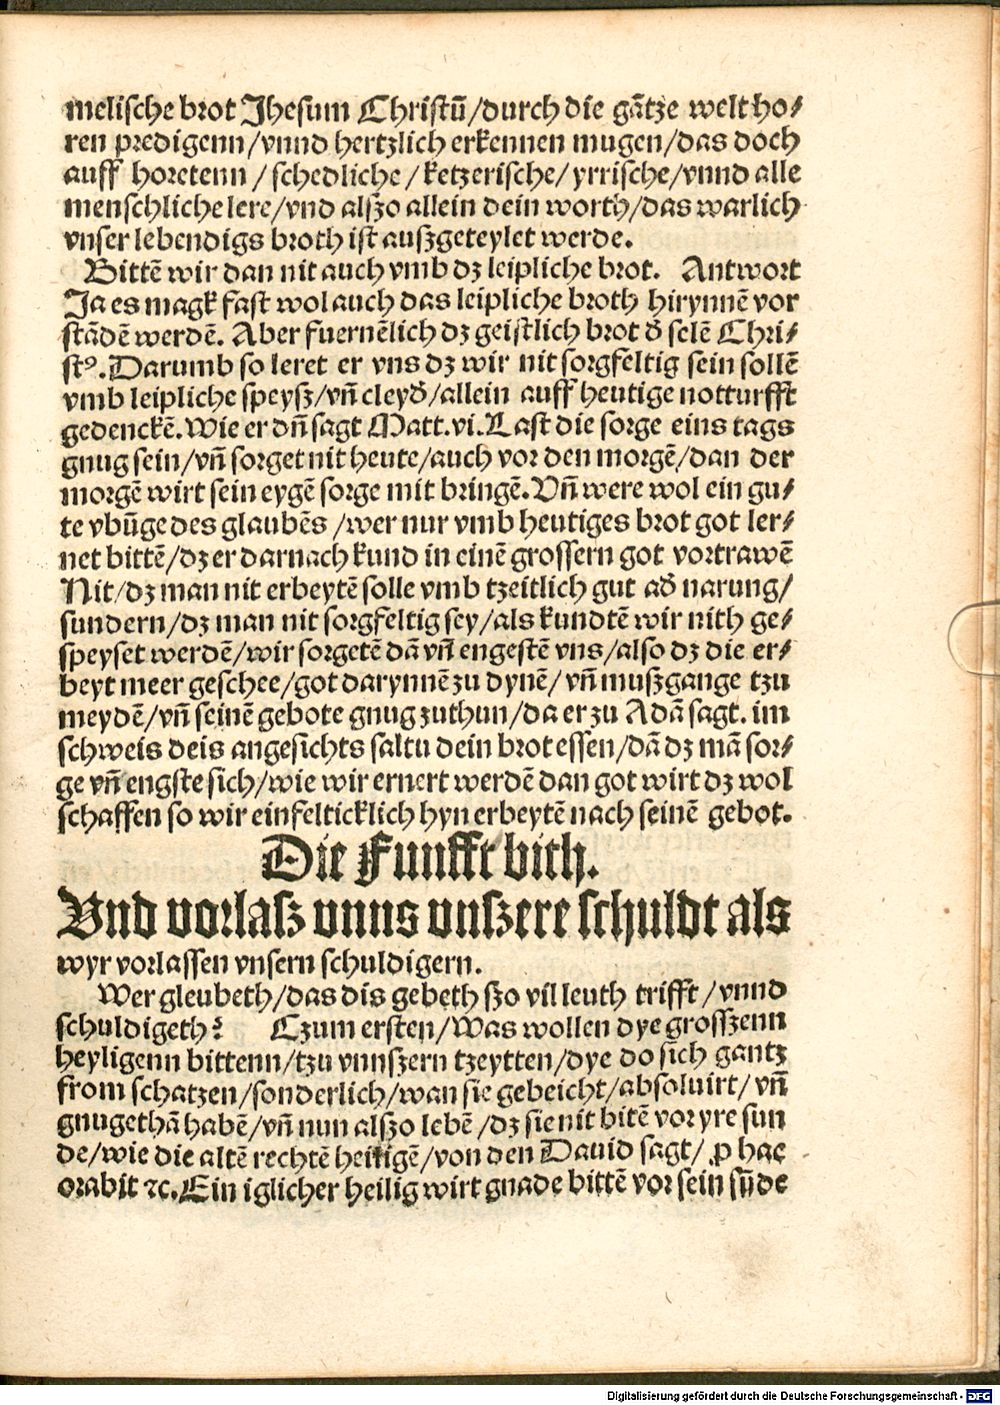 melische brot Jhesum Christū/durch die gātze welt ho⸗
ren predigenn/vnnd hertzlich erkennen mugen/das doch
auff horetenn/schedliche/ketzerische/yrrische/vnnd alle
menschliche lere/vnd alszo allein dein worth/das warlich
vnser lebendigs broth ist auszgeteylet werde.
Bittē wir dan nit auch vmb dz leipliche brot. Antwort
Ja es magk fast wol auch das leipliche broth hirynnē vor
stādē werdē. Aber fuernēlich dz geistlich brot đ selē Chri⸗
stꝰ. Darumb so leret er vns dz wir nit sorgfeltig sein sollē
vmb leipliche speysz/vn̄ cleyđ/allein auff heutige notturfft
gedenckē. Wie er dn̄ sagt Matt. vi. Last die sorge eins tags
gnug sein/vn̄ sorget nit heute/auch vor den morgē/dan der
morgē wirt sein eygē sorge mit bringē. Vn̄ were wol ein gu⸗
te vbūge des glaubēs/wer nur vmb heutiges brot got ler⸗
net bittē/dz er darnach kund in einē grossern got vortrawē
Nit/dz man nit erbeytē solle vmb tzeitlich gut ađ narung/
sundern/dz man nit sorgfeltig sey/als kundtē wir nith ge⸗
speyset werdē/wir sorgetē dā vn̄ engestē vns/also dz die er⸗
beyt meer geschee/got darynnē zu dynē/vn̄ muszgange tzu
meydē/vn̄ seinē gebote gnug zuthun/da er zu Adā sagt. im
schweis deis angesichts saltu dein brot essen/dā dz mā sor⸗
ge vn̄ engste sich/wie wir ernert werdē dan got wirt dz wol
schaffen so wir einfelticklich hyn erbeytē nach seinē gebot.
Die Funfft bith.
Vnd vorlasz vnns vnszere schuldt als
wyr vorlassen vnsern schuldigern.
Wer gleubeth/das dis gebeth szo vil leuth trifft/vnnd
schuldigeth? Czum ersten/Was wollen dye groszenn
heyligenn bittenn/tzu vnnszern tzeytten/dye do sich gantz
from schatzen/sonderlich/wan sie gebeicht/absoluirt/vn̄
gnugethā habē/vn̄ nun alszo lebē/dz sie nit bitē vor yre sun
de/wie die altē rechtē heiligē/von den Dauid sagt/ꝓ hac
orabit ⁊c. Ein iglicher heilig wirt gnade bittē vor sein sūde
Digitalisierung gefördert durch die Deutsche Forschungsgemeinschaft - DFG